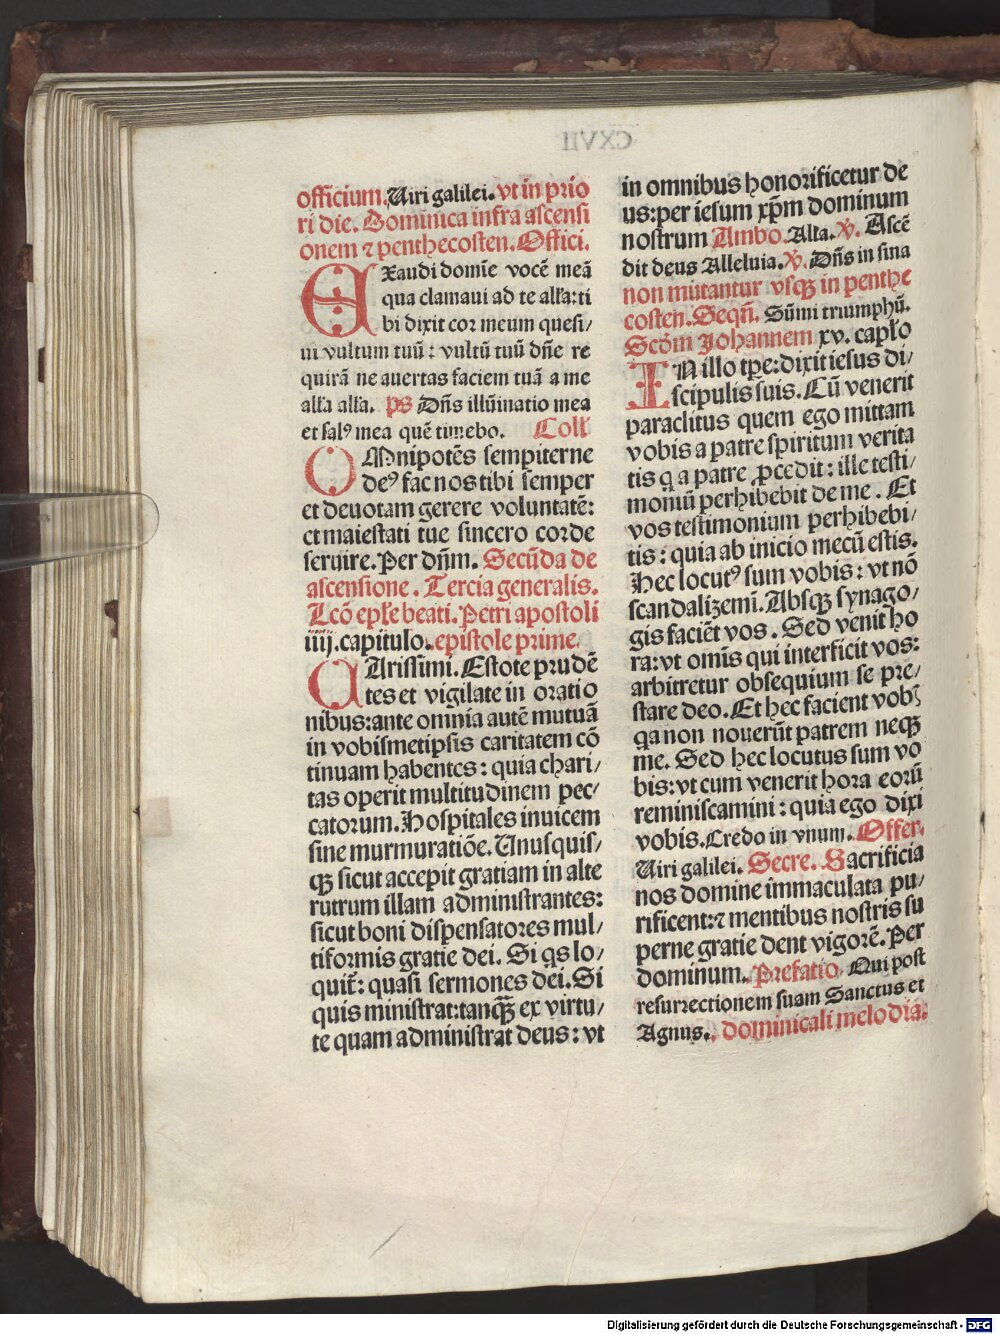 officium. Uiri galilei. vt in prio
ri die. Dominica infra ascensi
onem ⁊ penthecosten. Offici.
EXaudi domīe vocē meā
qua clamaui ad te alła: ti
bi dixit cor meum quesi/
ui vultum tuū : vultū tuū dñe re
quirā ne auertas faciem tuā a me
alła alła. ps Dñs illūinatio mea
et salꝰ mea quē timebo. Coll̄
OMnipotēs sempiterne
deꝰ fac nos tibi semper
et deuotam gerere voluntatē:
et maiestati tue sincero corde
seruire. Per dñm. Secūda de
ascensione. Tercia generalis.
Lcō epłe beati. Petri apostoli
iiij. capitulo. epistole prime.
CArissimi. Estote prudē
tes et vigilate in oratio
nibus: ante omnia autē mutuā
in vobismetipsis caritatem cō
tinuam habentes : quia chari/
tas operit multitudinem pec/
catorum. Hospitales inuicem
sine murmuratiōe. Unusquis/
qꝫ sicut accepit gratiam in alte
rutrum illam administrantes:
sicut boni dispensatores mul/
tiformis gratie dei. Si qs lo/
quit̄: quasi sermones dei. Si
quis ministrat: tanqꝫ̄ ex virtu/
te quam administrat deus : vt
in omnibus honorificetur de
us: per iesum xp̄m dominum
nostrum Ambo. Alła. ℣. Ascē
dit deus Alleluia. ℣. Dñs in sina
non mutantur vsqꝫ in penthe
costen. Seqñ. Sūmi triumphū.
Scđm Johannem xv. capło
IN illo tp̄e: dixit iesus di/
scipulis suis. Cū venerit
paraclitus quem ego mittam
vobis a patre spiritum verita
tis q a patre ꝓcedit : ille testi/
moniū perhibebit de me. Et
vos testimonium perhibebi/
tis : quia ab inicio mecū estis.
Hec locutꝰ sum vobis : vt nō
scandalizemī. Absqꝫ synago/
gis faciēt vos. Sed venit ho
ra: vt omīs qui interficit vos:
arbitretur obsequium se pre/
stare deo. Et hec facient vobꝭ
qa non nouerūt patrem neqꝫ
me. Sed hec locutus sum vo
bis: vt cum venerit hora eorū
reminiscamini : quia ego dixi
vobis. Credo in vnum. Offer.
Uiri galilei. Secre. Sacrificia
nos domine immaculata pu/
rificent: ⁊ mentibus nostris su
perne gratie dent vigorē. Per
dominum. Prefatio. Qui post
resurrectionem suam Sanctus et
Agnus. dominicali melodia.
Digitalisierung gefördert durch die Deutsche Forschungsgemeinschaft - DFG